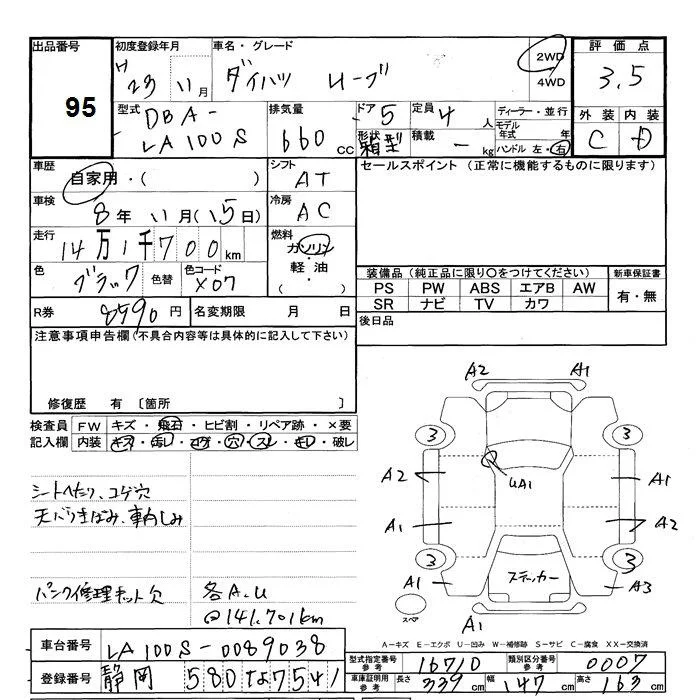 出品番号 初度登録年月 車名・グレード 2WD 評価点
H 23 11月 ダイハツ ムーヴ 4WD 3.5
95
型式 排気量 ドア 定員 ディーラー・並行 外装 内装
DBA- LA100S 660 cc 5 4 人 モデル年式 年 C D
形状 積載 ハンドル 左・右
箱型 - kg
車歴 シフト セールスポイント (正常に機能するものに限ります)
自家用・( ) AT
車検 冷房
8年 11月(15日) AC
走行 燃料
14万1千700km ガソリン・軽油・( )
色 色替 色コード 装備品 (純正品に限り○をつけてください) 新車保証書
ブラック X07 PS PW ABS エアB AW 有・無
SR ナビ TV カワ
R券 8590円 名変期限 月 日 後日品
注意事項申告欄(不具合内容等は具体的に記入して下さい)
修復歴 有 〔箇所
検査員 FW キズ・飛石・ヒビ割・リペア跡・×要
記入欄 内装 キズ・汚レ・コゲ・穴・スレ・キレ・破レ
シートへたり、コゲ穴
天バリきばみ、車内しみ
パンク修理キット欠 各A.U
@141.701km
A2 A1
3 3
A2 UA1 A1
A1 A2
3 3
A1 ステッカー A3
スペア A1
A-キズ E-エクボ U-凹み W-補修跡 S-サビ C-腐食 XX-交換済
車台番号 LA100S-0089038
登録番号 静岡 580 な 7541
型式指定番号 参考 16710 類別区分番号 参考 0007
車庫証明用 参考 長さ 339cm 幅 147cm 高さ 163cm